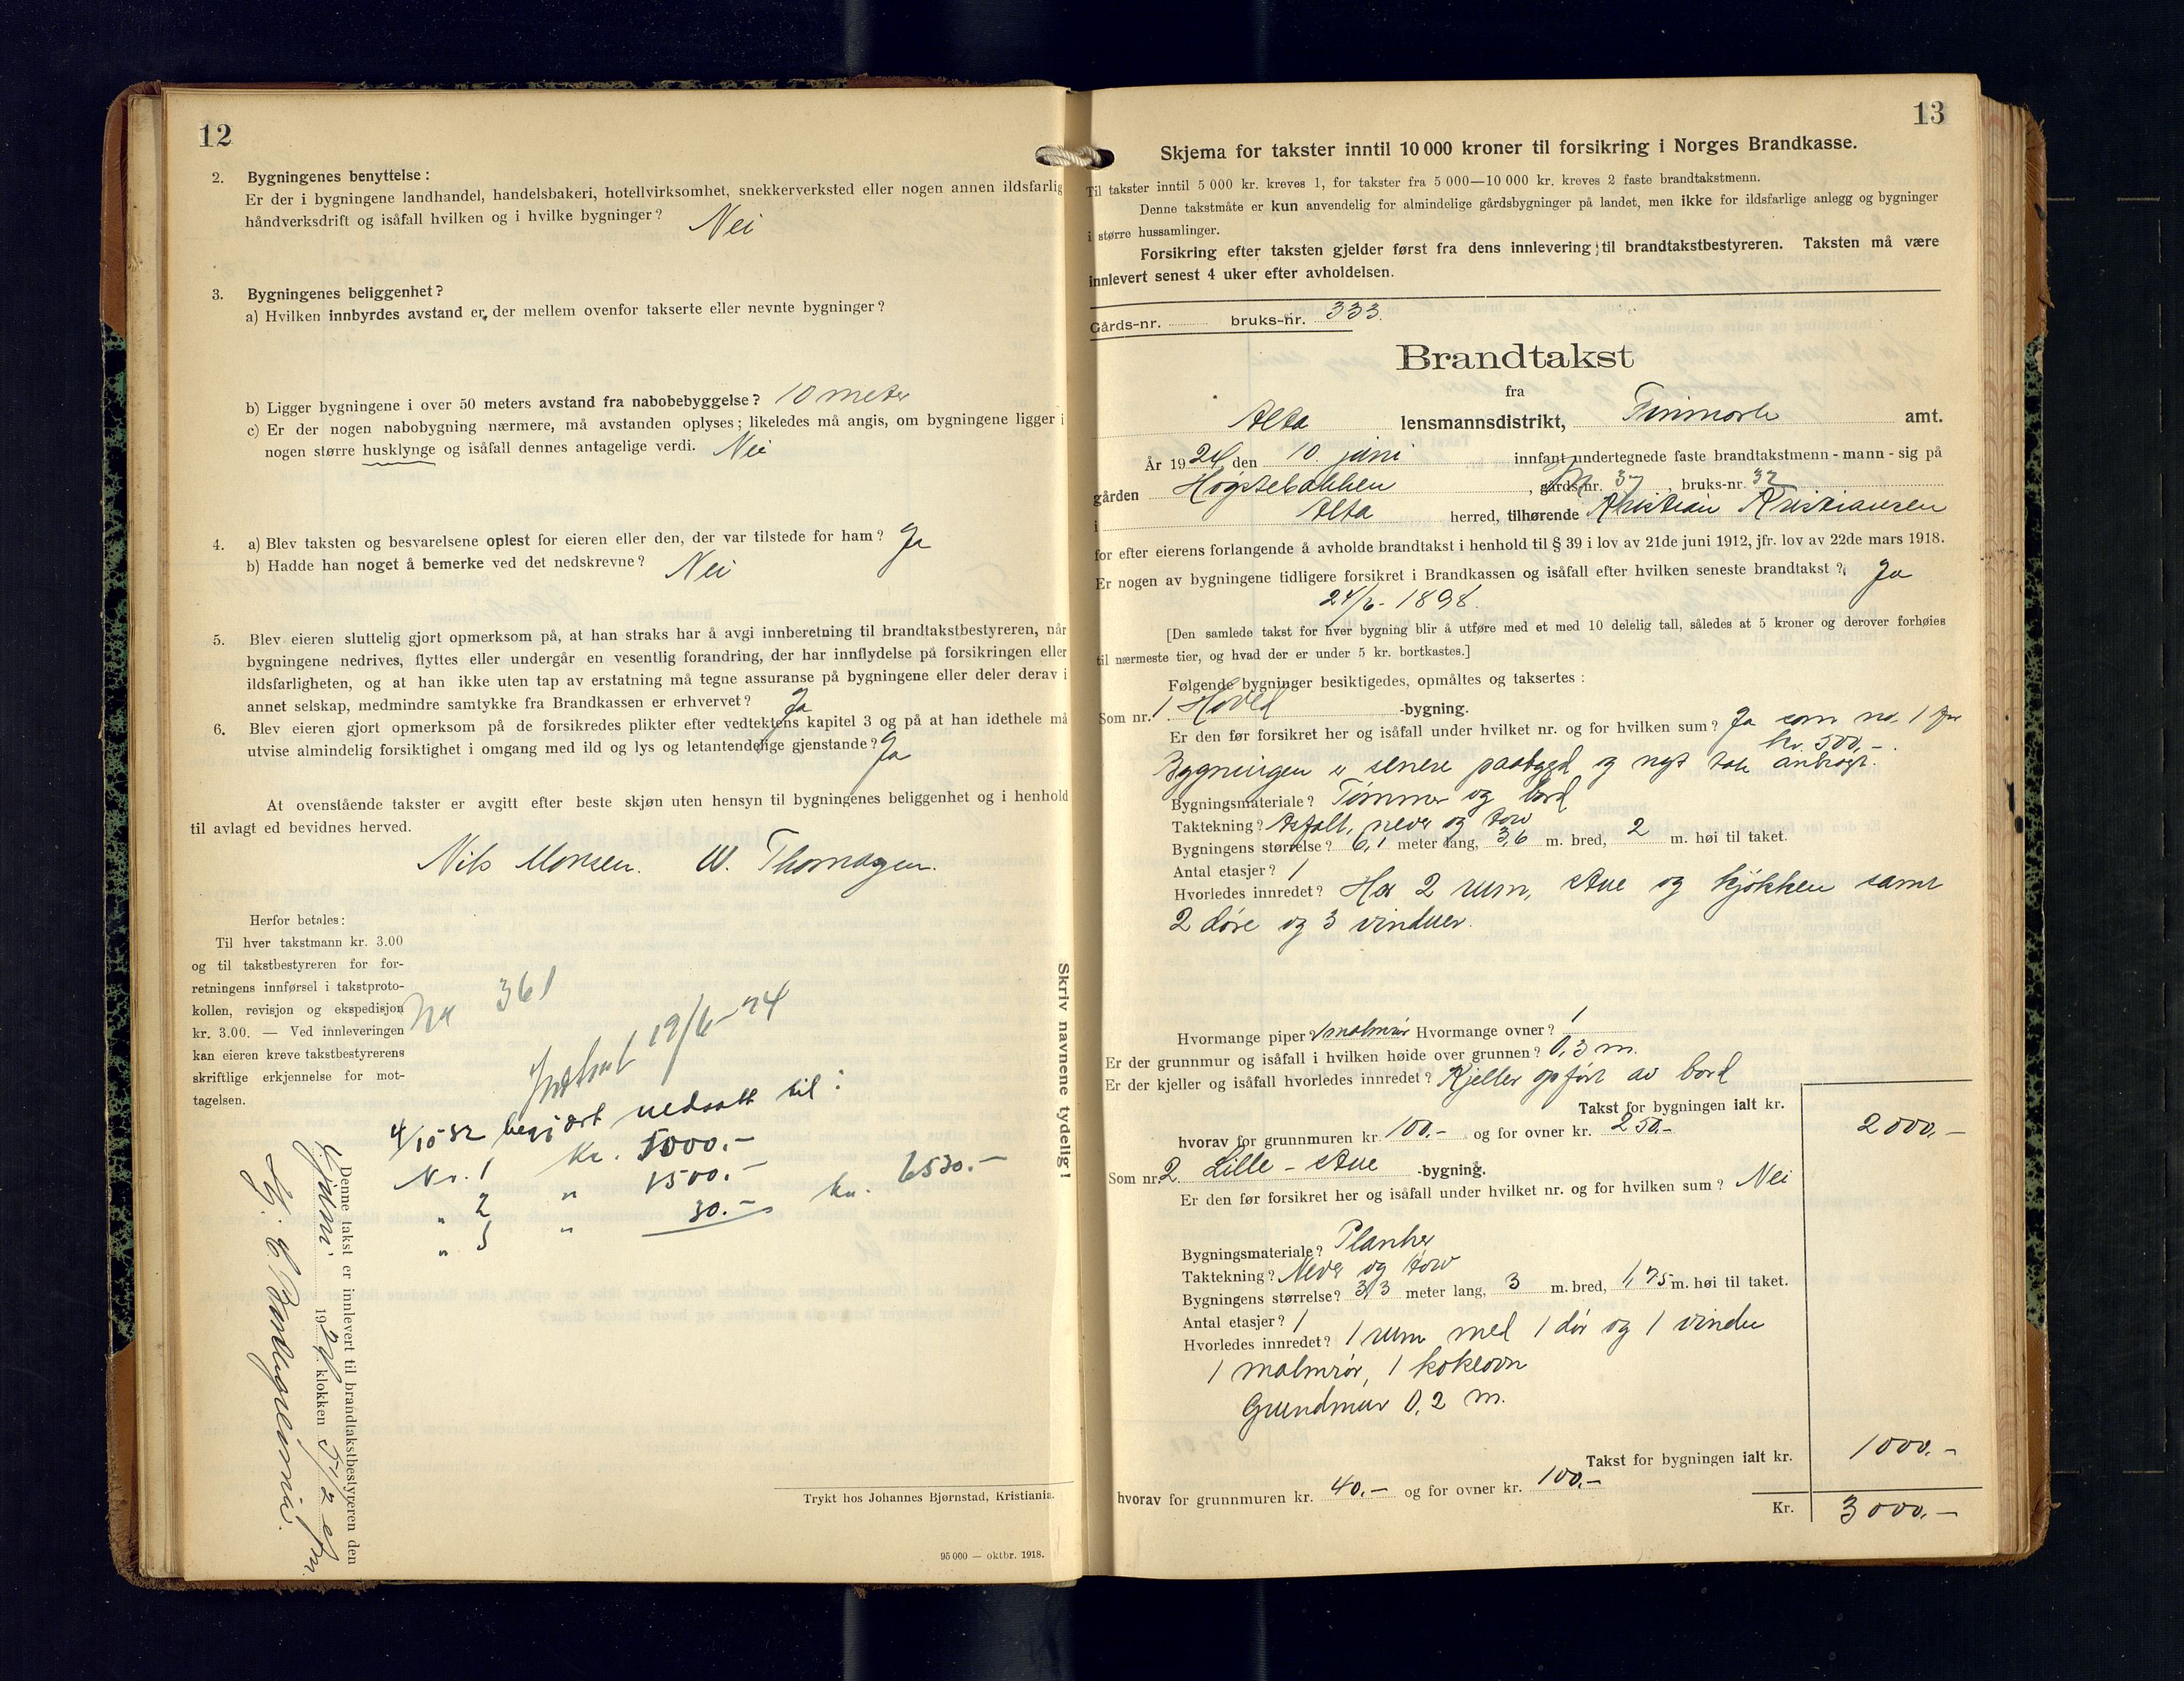 12
2. Bygningenes benyttelse:
Er der i bygningene landhandel, handelsbakeri, hotellvirksomhet, snekkerverksted eller nogen annen ildsfarlig
håndverksdrift og isåfall hvilken og i hvilke bygninger? Nei
3. Bygningenes beliggenhet?
a) Hvilken innbyrdes avstand er der mellem ovenfor takserte eller nevnte bygninger?
b) Ligger bygningene i over 50 meters avstand fra nabobebyggelse? 10 meter
c) Er der nogen nabobygning nærmere, må avstanden oplyses; likeledes må angis, om bygningene ligger i
nogen større husklynge og isåfall dennes antagelige verdi. Nei
4. a) Blev taksten og besvarelsene oplest for eieren eller den, der var tilstede for ham? Ja
b) Hadde han noget å bemerke ved det nedskrevne? Nei
5. Blev eieren sluttelig gjort opmerksom på, at han straks har å avgi innberetning til brandtakstbestyreren, når
bygningene nedrives, flyttes eller undergår en vesentlig forandring, der har innflydelse på forsikringen eller
ildsfarligheten, og at han ikke uten tap av erstatning må tegne assuranse på bygningene eller deler derav i
annet selskap, medmindre samtykke fra Brandkassen er erhvervet? Ja
6. Blev eieren gjort opmerksom på de forsikredes plikter efter vedtektens kapitel 3 og på at han idethele må
utvise almindelig forsiktighet i omgang med ild og lys og letantendelige gjenstande? Ja
At ovenstående takster er avgitt efter beste skjøn uten hensyn til bygningenes beliggenhet og i henhold
til avlagt ed bevidnes herved.
Nils Monsen. W. Thomasen.
Herfor betales:
Til hver takstmann kr. 3.00
og til takstbestyreren for for-
retningens innførsel i takstproto-
kollen, revisjon og ekspedisjon
kr. 3.00. — Ved innleveringen
kan eieren kreve takstbestyrerens
skriftlige erkjennelse for mot-
tagelsen.
361
19/6-24
4/10 32 begjært nedsatt til:
Nr. 1 Kr. 5000.-
" 2 " 1500.-
" 3 " 30.- kr. 6530.-
Denne takst er innlevert til brandtakstbestyreren den
juni 1924 klokken 5 1/2 efm.
Skriv navnene tydelig!
Trykt hos Johannes Bjørnstad, Kristiania.
95 000 — oktbr. 1918.
13
Skjema for takster inntil 10 000 kroner til forsikring i Norges Brandkasse.
Til takster inntil 5 000 kr. kreves 1, for takster fra 5 000—10 000 kr. kreves 2 faste brandtakstmenn.
Denne takstmåte er kun anvendelig for almindelige gårdsbygninger på landet, men ikke for ildsfarlige anlegg og bygninger
i større hussamlinger.
Forsikring efter taksten gjelder først fra dens innlevering til brandtakstbestyreren. Taksten må være
innlevert senest 4 uker efter avholdelsen.
Gårds-nr. bruks-nr. 333.
Brandtakst
fra
Alta lensmannsdistrikt, Finmark amt.
År 1924 den 10. juni innfant undertegnede faste brandtakstmenn - mann - sig på
gården Høgstebakken, gårds-nr. 37, bruks-nr. 32
i Alta herred, tilhørende Kristian Kristiansen
for efter eierens forlangende å avholde brandtakst i henhold til § 39 i lov av 21de juni 1912, jfr. lov av 22de mars 1918.
Er nogen av bygningene tidligere forsikret i Brandkassen og isåfall efter hvilken seneste brandtakst? Ja
24/6-1898.
[Den samlede takst for hver bygning blir å utføre med et med 10 delelig tall, således at 5 kroner og derover forhøies
til nærmeste tier, og hvad der er under 5 kr. bortkastes.]
Følgende bygninger besiktigedes, opmåltes og taksertes:
Som nr. 1 Hoved -bygning.
Er den før forsikret her og isåfall under hvilket nr. og for hvilken sum? Ja som no. 1 for
kr. 500,-.
Bygningen er senere paabygd og nyt tak anbragt.
Bygningsmateriale? Tømmer og bord
Taktekning? Asfalt, never og torv
Bygningens størrelse? 6,1 meter lang, 3,6 m. bred, 2 m. høi til taket.
Antal etasjer? 1
Hvorledes innredet? Har 2 rum, stue og kjøkken samt
2 døre og 3 vinduer.
Hvormange piper? 1 malmrør Hvormange ovner? 1
Er der grunnmur og isåfall i hvilken høide over grunnen? 0,3 m.
Er der kjeller og isåfall hvorledes innredet? Kjeller opført av bord
Takst for bygningen ialt kr. 2000,-
hvorav for grunnmuren kr. 100,- og for ovner kr. 250.-
Som nr. 2. Lille-stue -bygning.
Er den før forsikret her og isåfall under hvilket nr. og for hvilken sum? Nei
Bygningsmateriale? Planker
Taktekning? Never og torv
Bygningens størrelse? 3,3 meter lang, 3 m. bred, 1,75 m. høi til taket.
Antal etasjer? 1
Hvorledes innredet? 1 rum med 1 dør og 1 vindu
1 malmrør, 1 kokeovn
Grundmur 0,2 m.
Takst for bygningen ialt kr. 1000.-
hvorav for grunnmuren kr. 40,- og for ovner kr. 100,-
Kr. 3000,-